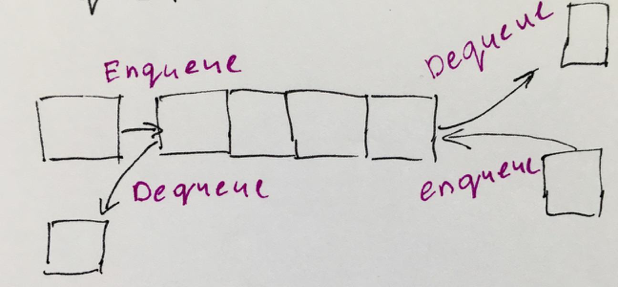 Enqueue
Dequeue
Dequeue
enqueue